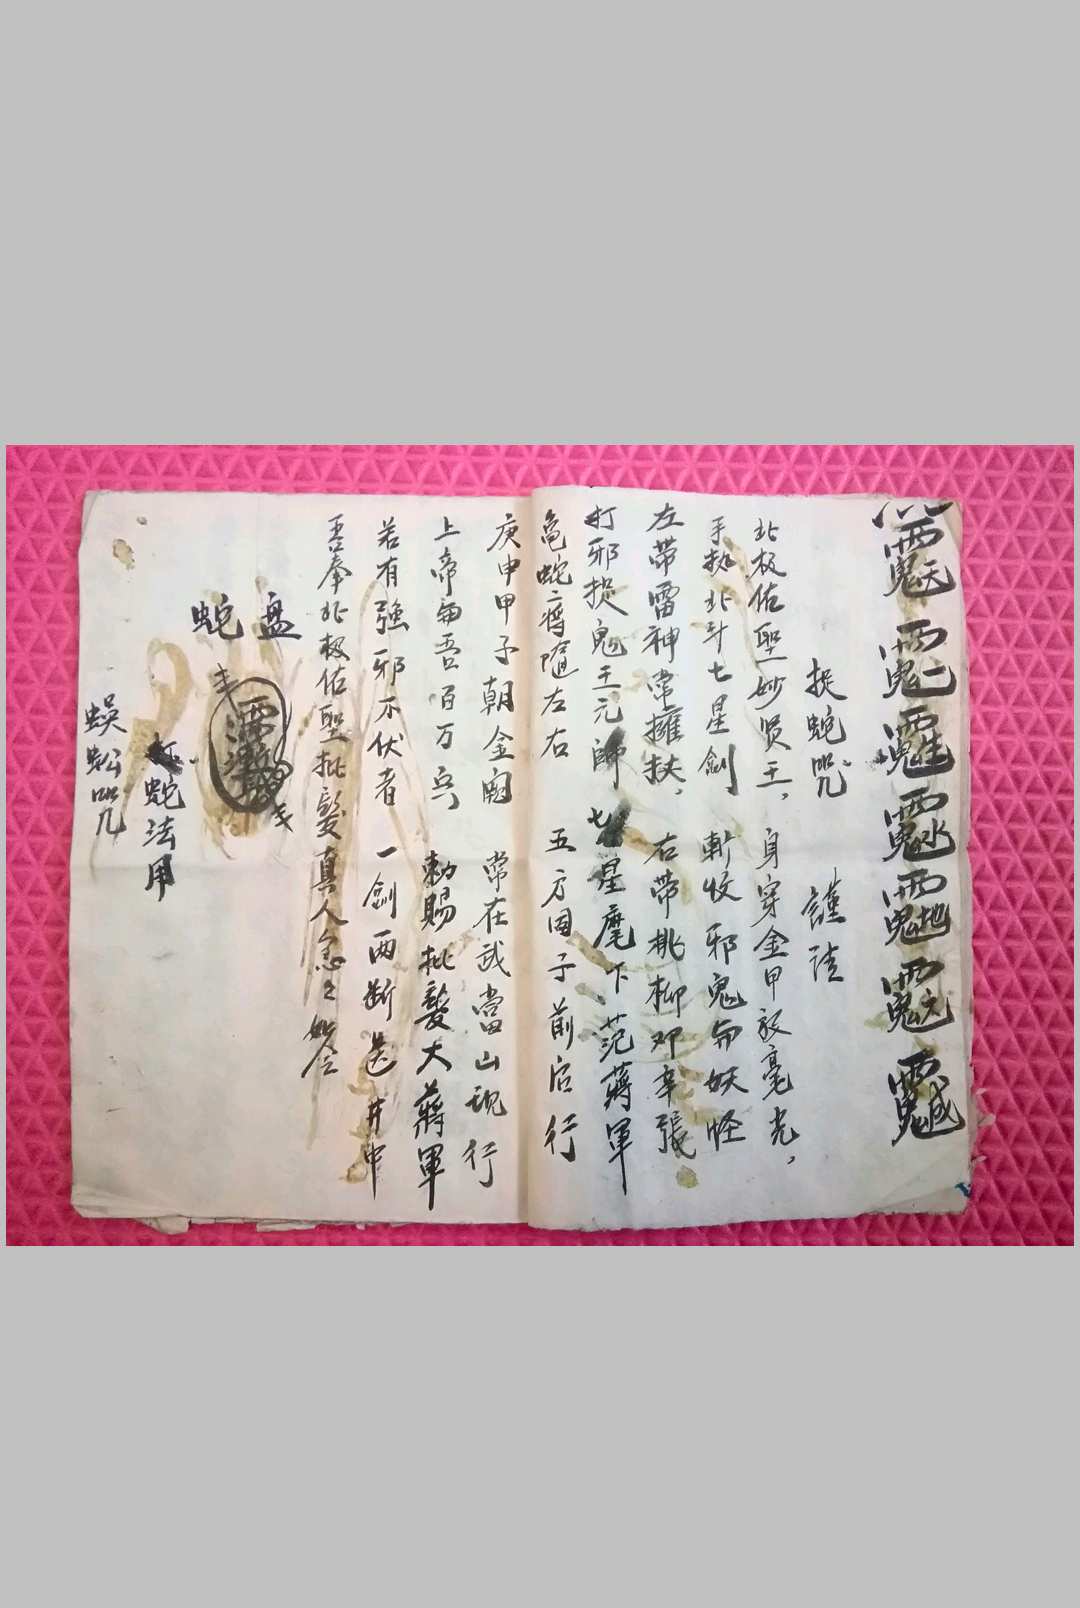 捉蛇咒 謹請
北极佑聖妙贤王，身穿金甲放毫光，
手执北斗七星劍 斬收邪鬼与妖怪
左带雷神常擁扶，右带桃柳邓辛張
打邪捉鬼王元師 七星麾下范蔣軍
龟蛇二将隨左右 五方囝子前后行
庚申甲子朝金闕 常在武當山現行
上帝勇吾百万兵 勅賜批髮大蔣軍
若有強邪不伏者 一劍两断送井中
吾奉北极佑聖批髮真人急々如令
盘蛇
蛇法用
蜈蚣咒